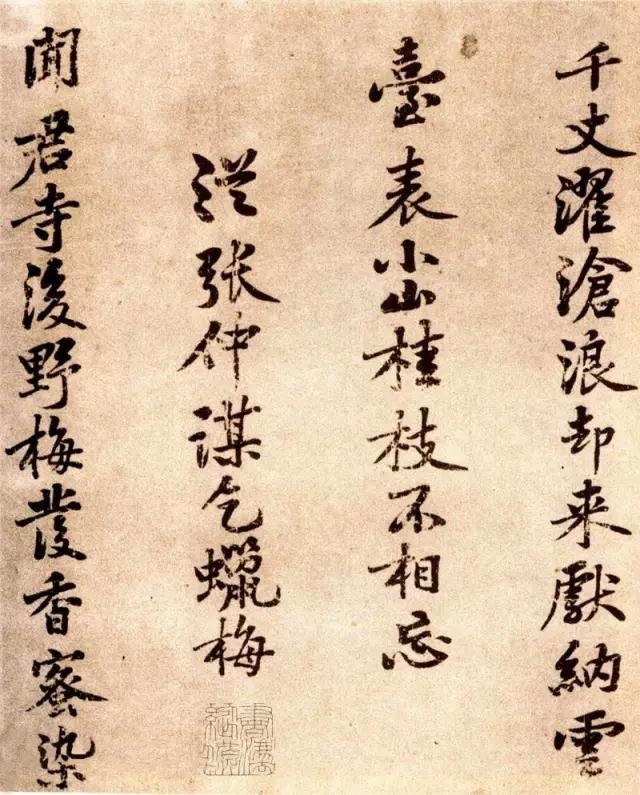 千丈濯滄浪却来獻納雲
臺表小山桂枝不相忘
従張仲謀乞蠟梅
聞君寺後野梅發香蜜染